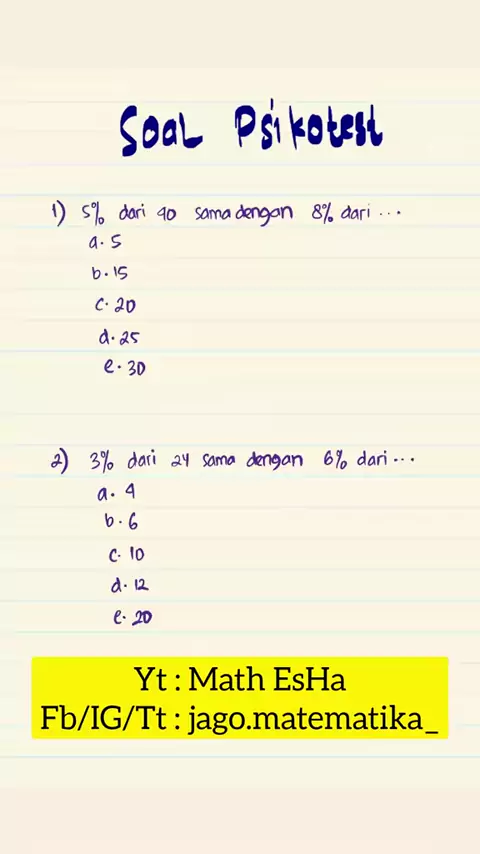 Soal Psikotest
1) 5% dari 40 sama dengan 8% dari ...
a. 5
b. 15
c. 20
d. 25
e. 30
2) 3% dari 24 sama dengan 6% dari ...
a. 4
b. 6
c. 10
d. 12
e. 20
Yt : Math EsHa
Fb/IG/Tt : jago.matematika_